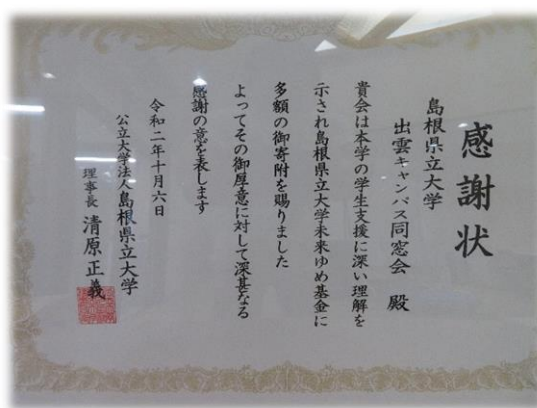 感謝状
島根県立大学
出雲キャンパス同窓会 殿
貴会は本学の学生支援に深い理解を
示され島根県立大学未来ゆめ基金に
多額の御寄附を賜りました
よってその御厚意に対して深甚なる
感謝の意を表します
令和二年十月六日
公立大学法人島根県立大学
理事長 清原正義